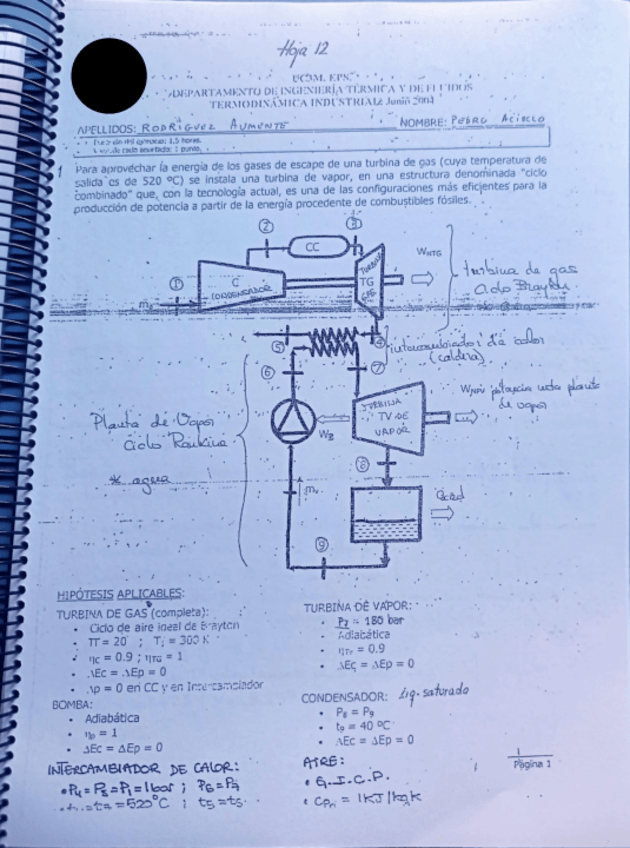 Hoja 12
UCOM. EPS.
DEPARTAMENTO DE INGENIERÍA TÉRMICA Y DE FLUIDOS
TERMODINÁMICA INDUSTRIAL Junio
APELLIDOS: RODRÍGUEZ AUMENTE NOMBRE: PEDRO ACISCLO
1,5 horas.
1 punto.
1 Para aprovechar la energía de los gases de escape de una turbina de gas (cuya temperatura de
salida es de 520 ºC) se instala una turbina de vapor, en una estructura denominada "ciclo
combinado" que, con la tecnología actual, es una de las configuraciones más eficientes para la
producción de potencia a partir de la energía procedente de combustibles fósiles.
2 CC 3
WNTG
turbina de gas
Ciclo Brayton
1 C CONDENSADOR TURBINA TG
5 4 intercambiador de calor
(caldera)
6 7
WNTV potencia neta planta
de vapor
TURBINA
TV DE
VAPOR
WB
Planta de Vapor
Ciclo Rankine
* agua
8
Qced
9
HIPÓTESIS APLICABLES:
TURBINA DE GAS (completa):
• Ciclo de aire ideal de Brayton
• π = 20 ; T1 = 300 K
• ηc = 0.9 ; ηTG = 1
• ΔEc = ΔEp = 0
• Δp = 0 en CC y en Intercambiador
BOMBA:
• Adiabática
• = 1
• ΔEc = ΔEp = 0
INTERCAMBIADOR DE CALOR:
• P4 = P5 = P1 = 1 bar ; P6 = P7
= 520ºC ;
TURBINA DE VAPOR:
• P7 = 180 bar
• Adiabática
• = 0.9
• ΔEc = ΔEp = 0
CONDENSADOR: Liq. saturado
• P8 = P9
• t9 = 40 ºC
• ΔEc = ΔEp = 0
AIRE:
• G.I.C.P.
• = 1 kJ/kgK
1
Página 1